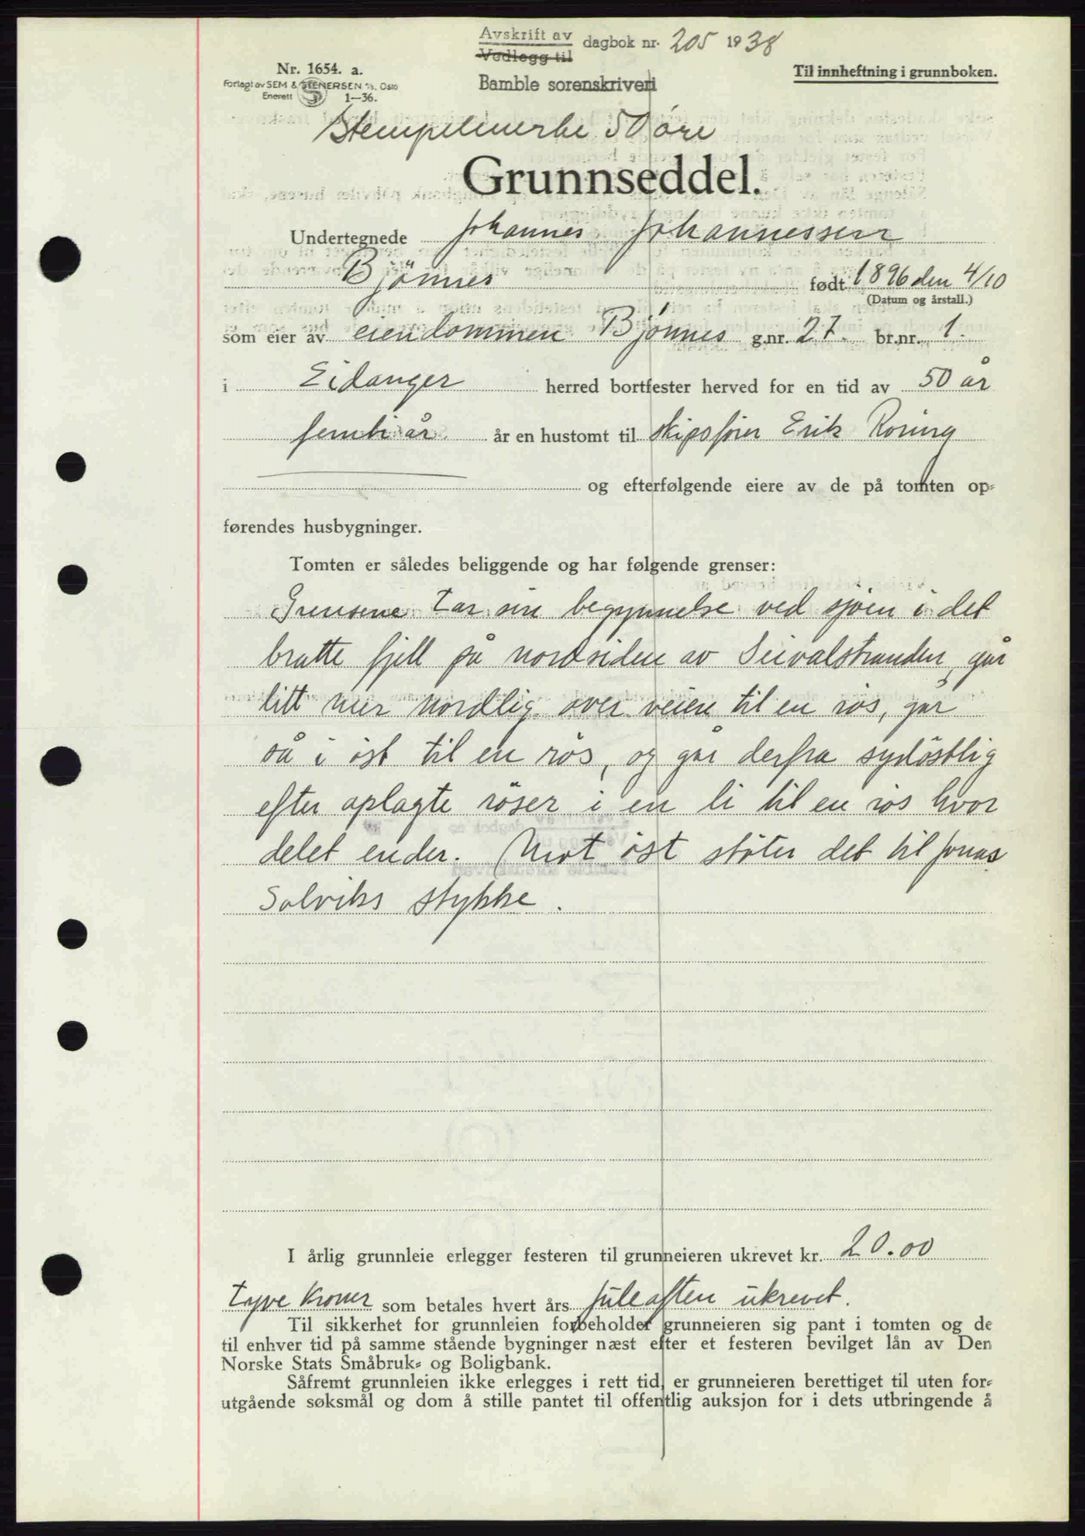 Avskrift av
Vedlegg til
dagbok nr. 205 1938
Bamble sorenskriveri
Nr. 1654. a.
Forlagt av SEM & STENERSEN A/S, Oslo
Enerett S 1—36.
Til innheftning i grunnboken.
Stempelmerke 50 øre
Grunnseddel.
Undertegnede Johannes Johannessen
Bjønnes født 1896 den 4/10
(Datum og årstall.)
som eier av eiendommen Bjønnes g.nr. 27. br.nr. 1.
i Eidanger herred bortfester herved for en tid av 50 år
femti år år en hustomt til skipsfører Erik Roning
og efterfølgende eiere av de på tomten op-
førendes husbygninger.
Tomten er således beliggende og har følgende grenser:
Grensene tar sin begynnelse ved sjøen i det
bratte fjell på nordsiden av Seivalstranden, går
litt mer nordlig over veien til en røs, går
så i øst til en røs, og går derfra sydøstlig
efter oplagte röser i en li til en røs hvor
delet ender. Mot øst støter det til Jonas
Solviks stykke.
I årlig grunnleie erlegger festeren til grunneieren ukrevet kr. 20.00
tyve kroner som betales hvert års juleaften ukrevet.
Til sikkerhet for grunnleien forbeholder grunneieren sig pant i tomten og de
til enhver tid på samme stående bygninger næst efter et festeren bevilget lån av Den
Norske Stats Småbruk- og Boligbank.
Såfremt grunnleien ikke erlegges i rett tid, er grunneieren berettiget til uten for-
utgående søksmål og dom å stille pantet til offentlig auksjon for i dets utbringende å